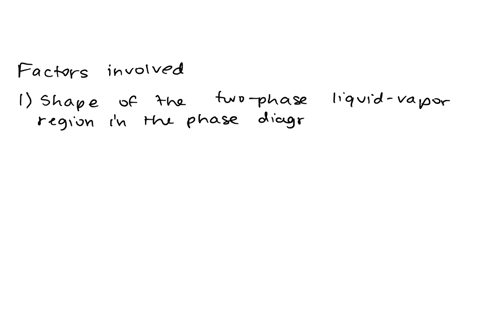 Factors involved
1) Shape of the two-phase liquid-vapor
region in the phase diagr